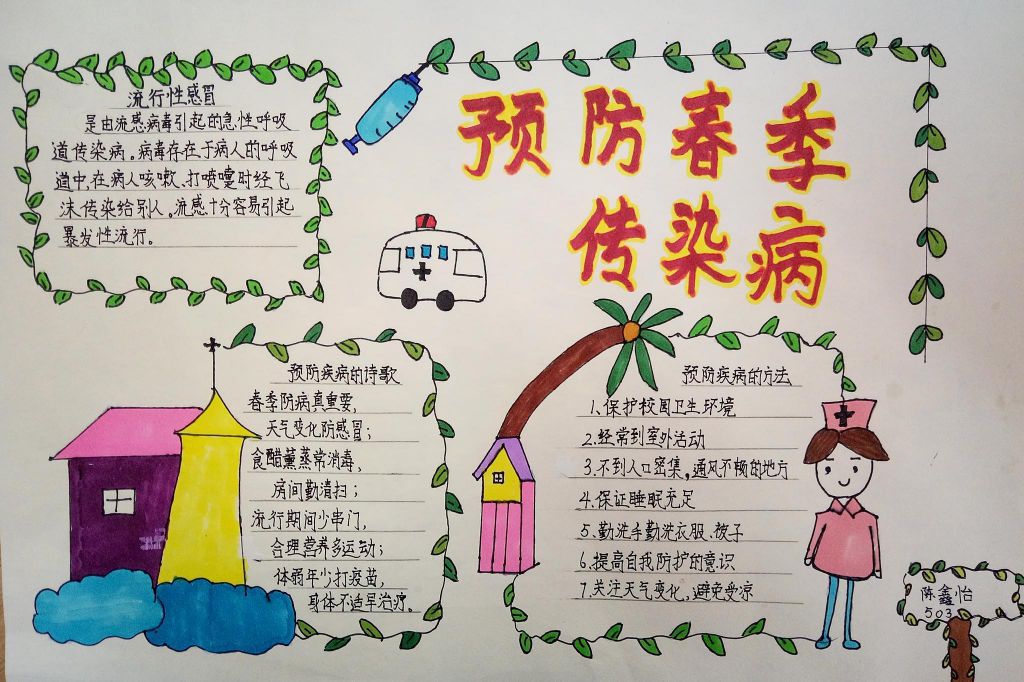 预防春季
传染病
流行性感冒
是由流感病毒引起的急性呼吸
道传染病。病毒存在于病人的呼吸
道中,在病人咳嗽、打喷嚏时经飞
沫传染给别人。流感十分容易引起
暴发性流行。
预防疾病的诗歌
春季防病真重要,
天气变化防感冒;
食醋薰蒸常消毒,
房间勤清扫;
流行期间少串门,
合理营养多运动;
体弱年少打疫苗,
身体不适早治疗。
预防疾病的方法
1.保护校园卫生环境
2.经常到室外活动
3.不到人口密集,通风不畅的地方
4.保证睡眠充足
5.勤洗手勤洗衣服、被子
6.提高自我防护的意识
7.关注天气变化,避免受凉
陈鑫怡
503